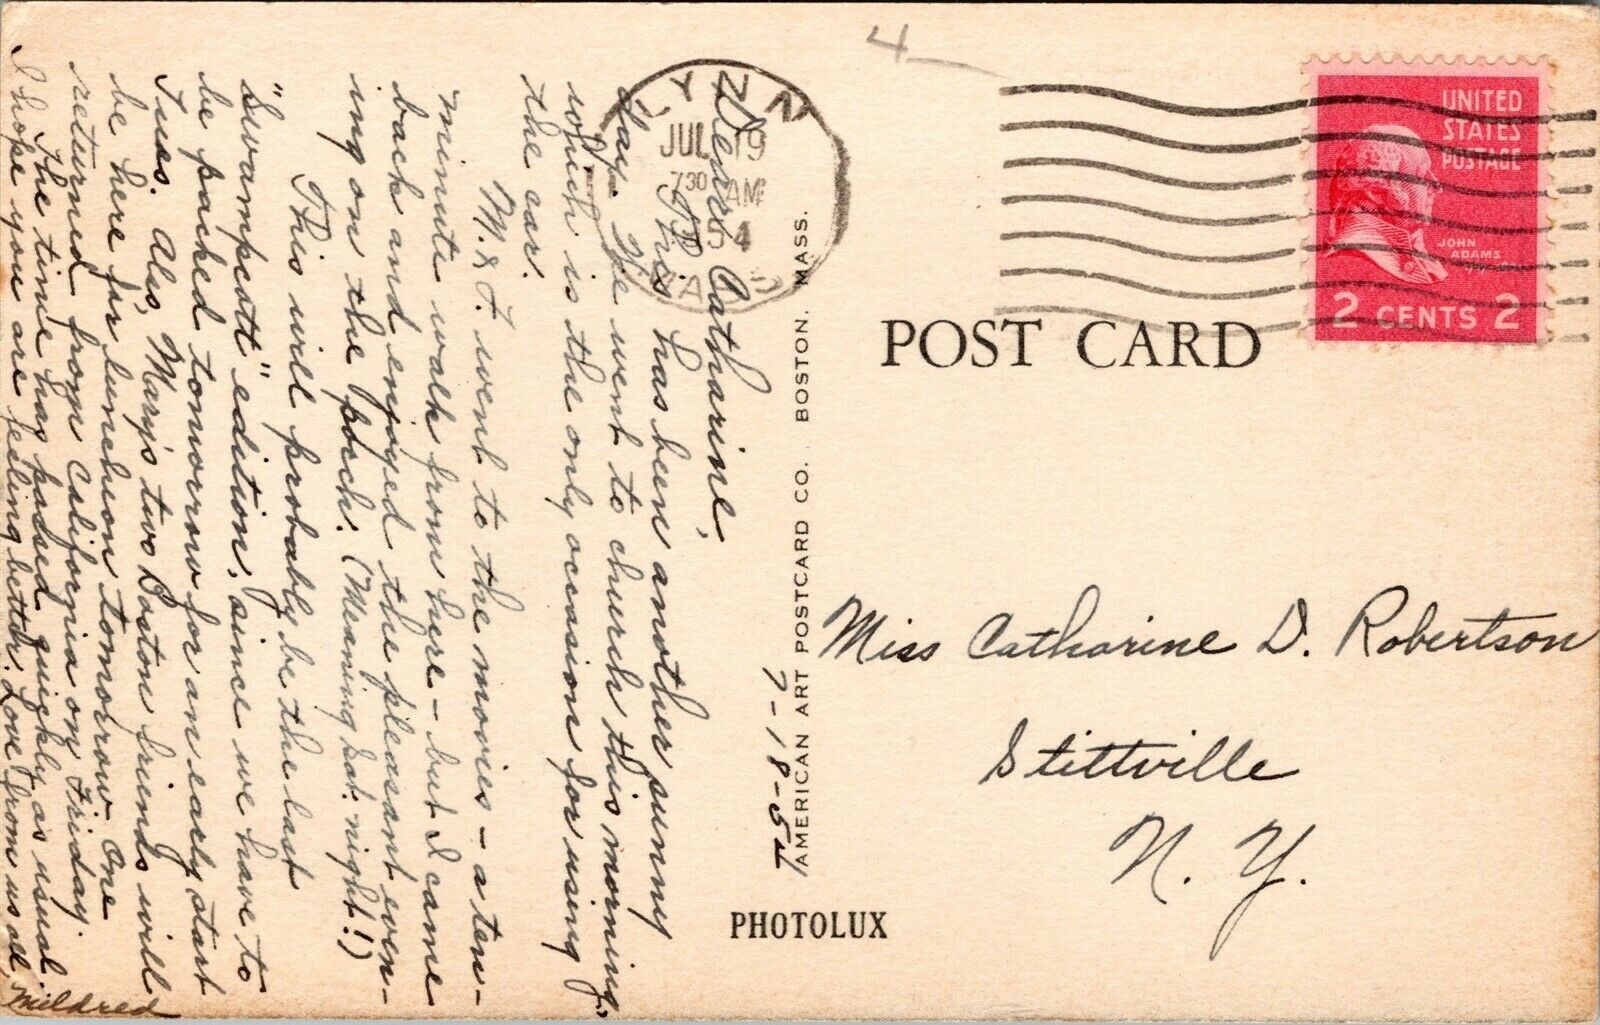 4
LYNN
JUL 19
730 AM
1954
MASS
UNITED
STATES
POSTAGE
JOHN
ADAMS
2 CENTS 2
POST CARD
AMERICAN ART POSTCARD CO. BOSTON. MASS.
PHOTOLUX
7-18-54
Dear Catharine,
This has been another sunny
day. We went to church this morning,
which is the only occasion for using
the car.
M. & F. went to the movies - a ten-
minute walk from here - but I came
back and enjoyed the pleasant even-
ing on the poćch. (Meaning Sat. night!)
This will probably be the last
"Swampcott" edition, since we have to
be packed tomorrow for an early start
Tues. Also, Mary's two Boston friends will
be here for luncheon tomorrow. One
returned from California on Friday.
The time has passed quickly as usual.
I hope you are feeling better. Love from us all,
Mildred
Miss Catharine D. Robertson
Stittville
N. Y.